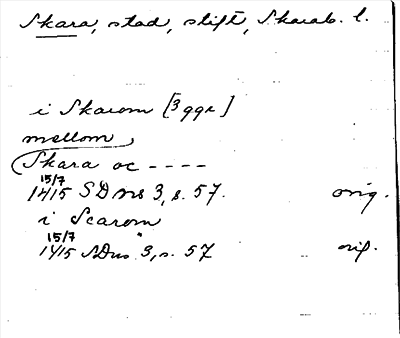 Skara, stad, stift, Skarab. l.
i Skarom [3 ggr]
mellom
(Skara oc ----
15/7
1415 SDns 3, s. 57. orig.
i Scarom
15/7
1415 SDns 3, s. 57 orig.